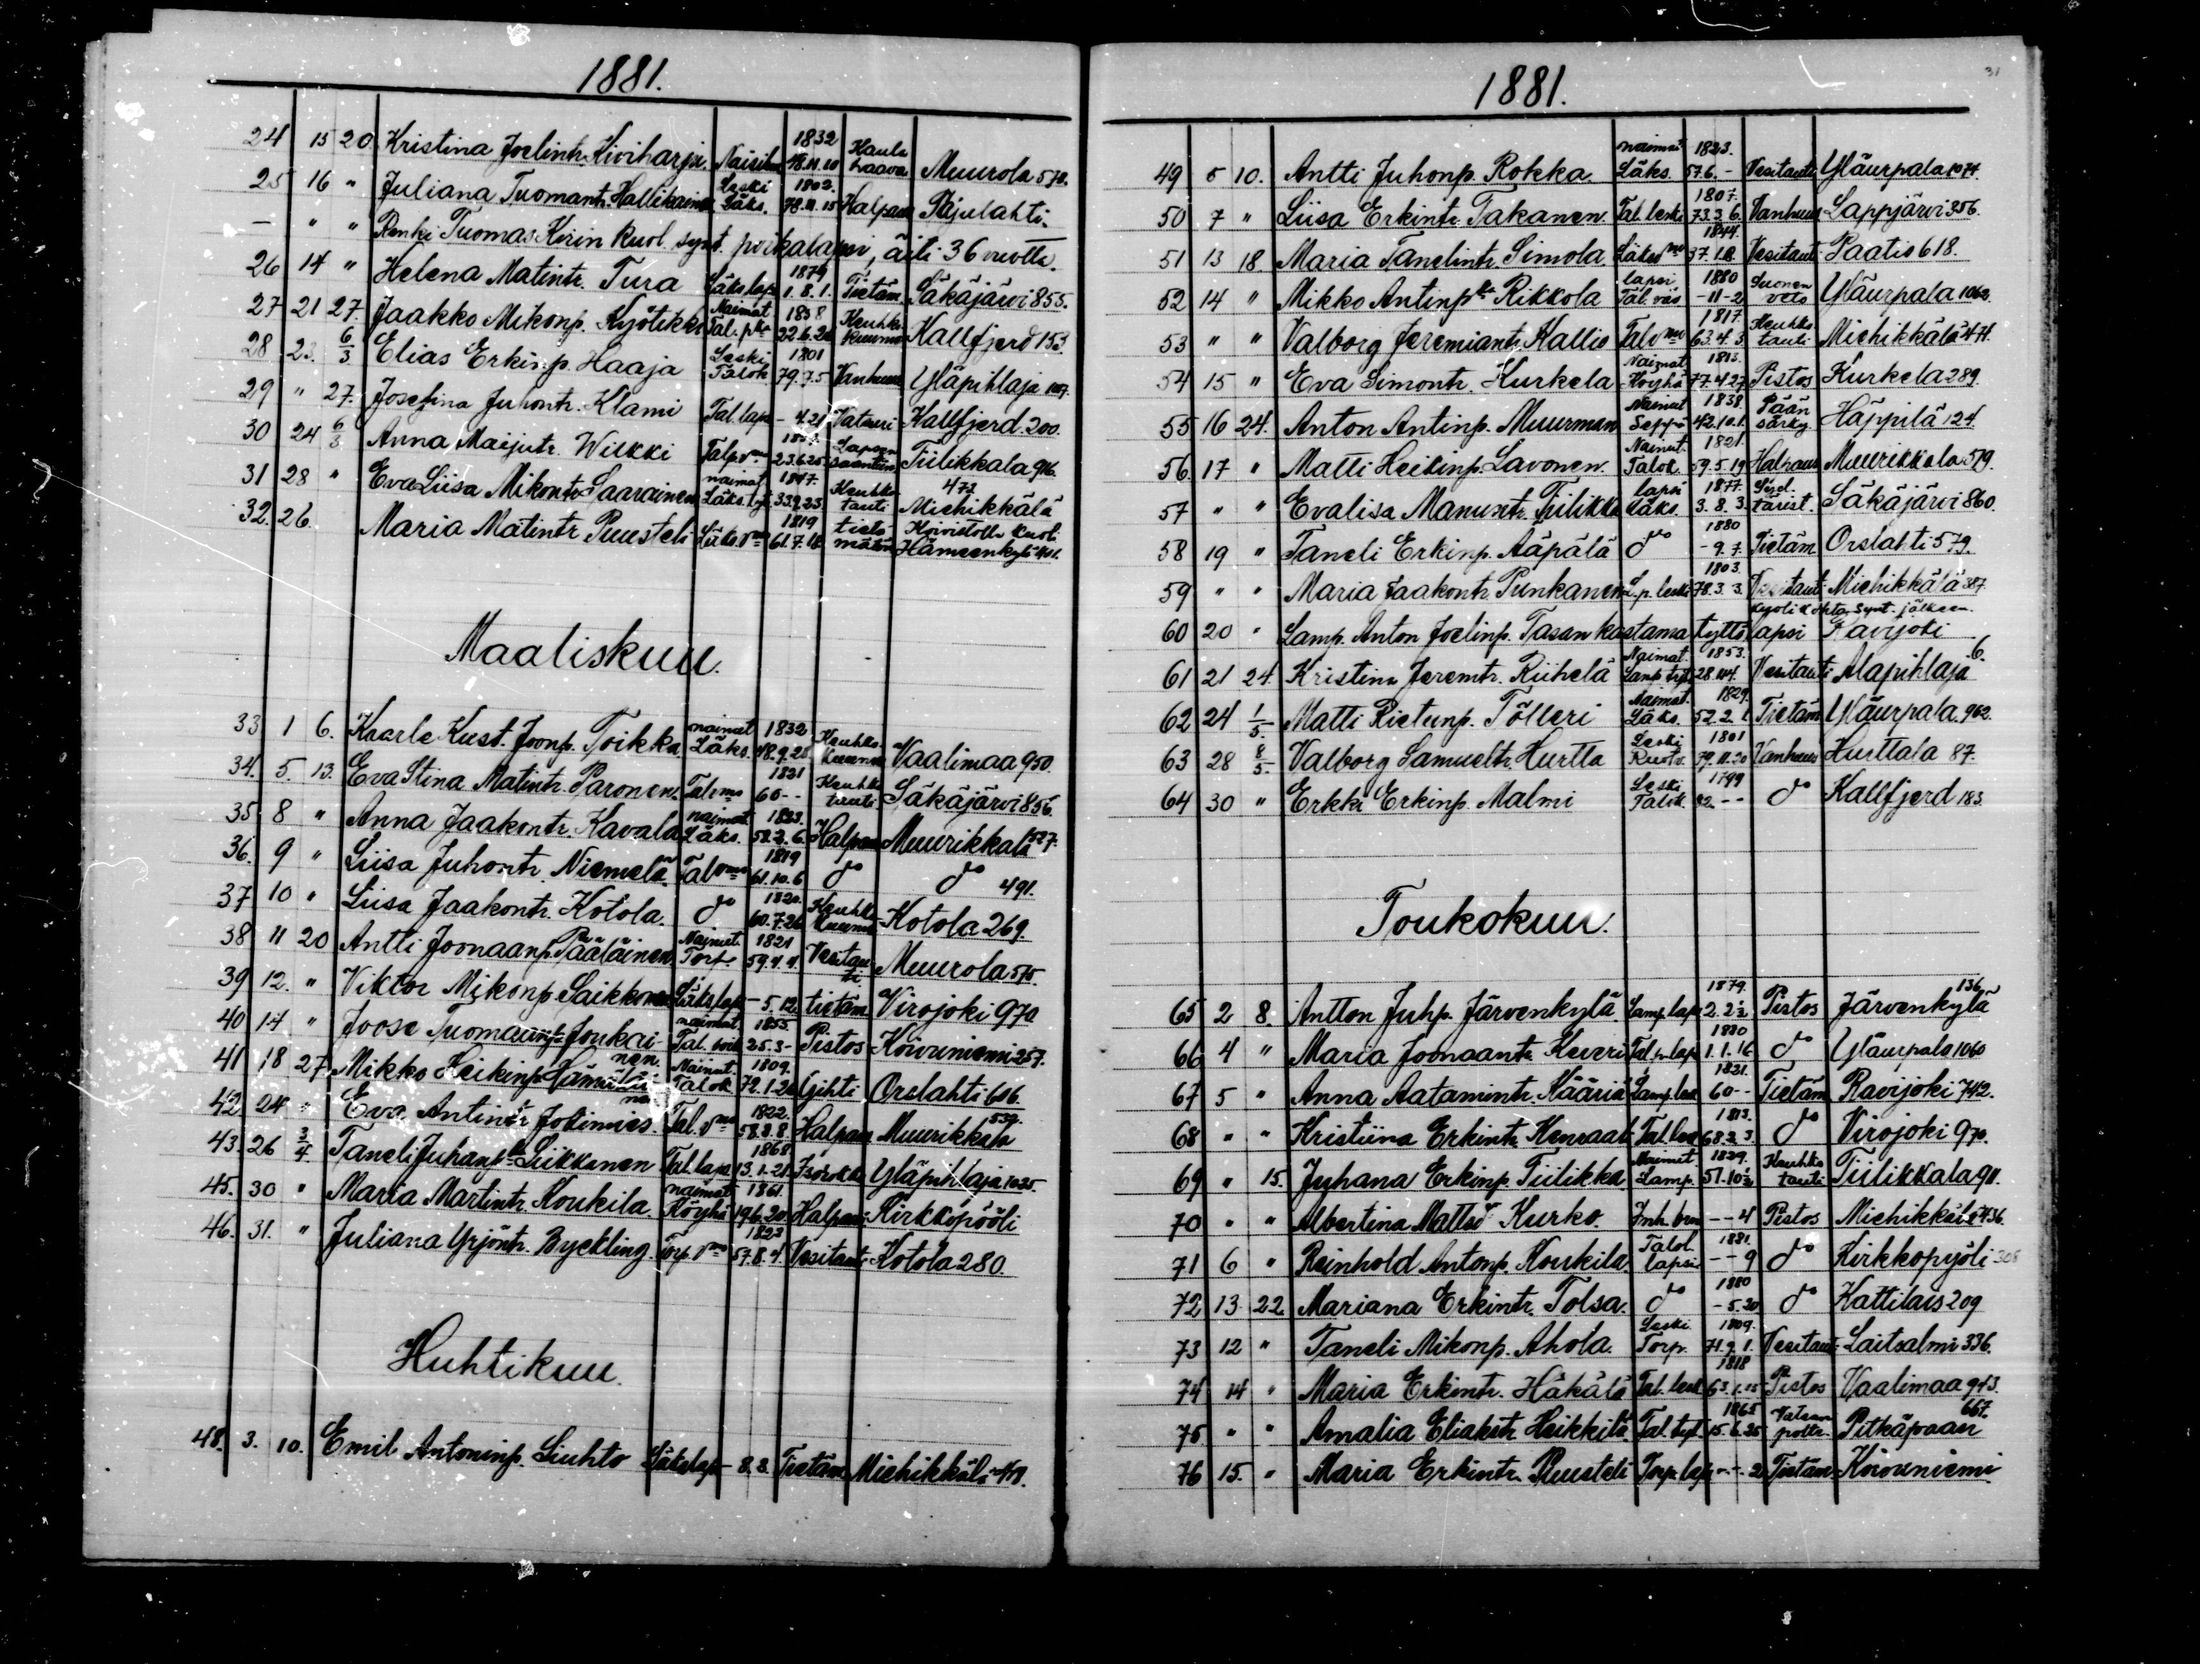 1881.
24 15 20 Kristina Joelintr. Kiviharju. 1832 48.11.10 Kaula haava Muurola 570.
25 16 " Juliana Tuomantr. Hallikainen Leski Läks. 1802. 78.11.15 Halpaus Pajulahti.
— " " Renki Tuomas Kirin kuol. synt. poikalapsi, äiti 36 vuotta.
26 14 " Helena Matintr. Tura Läks lapsi 1879 1.8.1. Tietäm. Säkäjärvi 855.
27 21 27. Jaakko Mikonp. Kyötikki Naimat. Tal. pka 1858 22.6.26 Keuhko kuume Kallfjerd 153.
28 23. 6/3 Elias Erkinp. Haaja Leski Talok 1801 79.7.5 Vanhuus Yläpihlaja 1007.
29 " 27. Josefina Juhontr. Klami Tal laps - 4.21 Vatauri Kallfjerd 200.
30 24 6/3 Anna Maijutr. Wilkki 23.6.25 Lapsen saantiin Tiilikkala 916.
31 28 " Eva Liisa Mikontr. Saarainen naimat. 1847. 33.9.23 Keuhko tauti 473 Miehikkälä
32. 26. Maria Matintr Puusteli Läks vmo 1819 61.7.18 tietämätön Koivistolla kuol. Hämeenkylä 401.
Maaliskuu.
33 1 6. Kaarle Kust. Joonp. Toikka. naimat Läks. 1832 48.9.28 Keuhko kuume Vaalimaa 950.
34. 5. 13. Eva Stina Matintr. Paronen. Tal vmo 1821 60 - - Keuhko tauti Säkäjärvi 856.
35 8 " Anna Jaakontr. Kavala naimat. Läks. 1823. 58.2.6. Halpaus Muurikkala 527.
36. 9 " Liisa Juhontr. Niemelä. Tal vmo 1819 61.10.6 do do 491.
37 10 " Liisa Jaakontr. Kotola. do 1820. 60.7.26 Keuhko kuume Kotola 269.
38 11 20 Antti Joonaanp. Pääläinen Naimat. Torp. 1821 59.4.4. Vesitauti Muurola 575.
39 12. " Viktor Mikonp. Saikkonen Läks laps - 5.12. tietäm. Virojoki 970
40 14 " Joose Tuomaanp. Joukainen. naimat. 1855. 25.3- Pistos Koivuniemi 257.
41 18 27 Mikko Heikinp. Hämäläinen Naimat. Talok 1809. 72.1.26 Gihti Orslahti 606.
42 24 " Eva Antintr Jokimies. Tal. vmo 1822. 58.8.8. Halpaus Muurikkala 539.
43. 26 3/4. Taneli Juhanp. Liikkanen Tal. laps. 1868 13.1.21. Isorokko Yläpihlaja 1025.
45. 30 " Maria Martintr. Koukila. naimat Köyhä 1861. 19.6.20. Halpaus Kirkkopööli
46. 31. " Juliana Yrjöntr. Byckling. Torp. vmo 1823 57.8.4. Vesitauti Kotola 280.
Huhtikuu.
48. 3. 10. Emil Antoninp. Liuhto Läks laps - 8.8. Tietäm. Miehikkälä
31
1881.
49 5 10. Antti Juhonp. Rokka. naimat Läks. 1823. 57.6.- Vesitauti Yläurpala 1074.
50 7 " Liisa Erkintr. Takanen. Tal. leski 1807. 73.3.6. Vanhuus Lappjärvi 356.
51 13 18 Maria Tanelintr. Simola. Läks vmo 1844. 37.1.8. Vesitauti Paatis 618.
52 14 " Mikko Antinpka Rikkola lapsi Tal. väv 1880 -11-2 Suonen veto Yläurpala 1062.
53 " " Valborg Jeremiantr. Kallio Tal vmo 1817. 63.4.3. Keuhko tauti Miehikkälä 471.
54 15 " Eva Simontr. Kurkela Naimat Köyhä 1813. 77.4.27 Pistos Kurkela 289.
55 16 24. Anton Antinp. Muurman Naimat Seppä 1838. 42.10.1. Pään särky Häppilä 124.
56 17 " Matti Heikinp. Lavonen. Naimat. Talok. 1821. 59.5.19 Halpaus Muurikkala 579.
57 " " Evalisa Manuntr. Tiilikka lapsi Läks. 1877. 3.8.3. Syd. tärist. Säkäjärvi 860.
58 19 " Taneli Erkinp. Ääpälä do 1880 - 9.7. Tietäm. Orslahti 579.
59 " " Maria Jaakontr. Punkanen L.p. leski 1803. 78.3.3. Vesitauti Miehikkälä 387.
60 20 " Lamp. Anton Joelinp. Tasan kastama tyttölapsi kuoli kohta synt. jälkeen. Ravijoki
61 21 24. Kristina Jeremtr. Riihelä Naimat. 1853. Vesitauti Alapihlaja 6.
62 24 1/5. Matti Rietunp. Tölleri Naimat. Läks. 1829. 52.2.1. Tietäm. Yläurpala 962.
63 28 8/5. Valborg Samueltr. Hurtta Leski Ruotiv. 1801 79.11.20 Vanhuus Hurttala 87.
64 30 " Erkki Erkinp. Malmi Leski Talok 1799 82. - - do Kallfjerd 183
Toukokuu.
65 2 8. Antton Juhp. Järvenkylä. Lamp. laps 1879. 2.2½ Pistos Järvenkylä 136
66 4 " Maria Joonaantr. Keveri Tal. p. lap 1880 1.1.16 do Yläurpala 1060
67 5 " Anna Aatamintr. Kääriä Lamp. lesk 1821. 60 - - Tietäm Ravijoki 742.
68 " " Kristiina Erkintr. Kenraali Tal. les 1813. 68.2.3 do Virojoki 970.
69 " 15. Juhana Erkinp. Tiilikka. Naimat Lamp. 1829. Keuhko tauti Tiilikkala 911.
70 " " Albertina Mattstr Kurko. - - 4 Pistos Miehikkälä 436.
71 6 " Reinhold Antonp. Koukila. Talol. lapsi 1881. - - 9 do Kirkkopyöli 308
72 13 22. Mariana Erkintr. Tolsa. do 1880 - 5.20 do Kattilais 209
73 12 " Taneli Mikonp. Ahola. Leski Torp. 1809. 71.9.1. Vesitauti Laitsalmi 336.
74 14 " Maria Erkintr. Häkälä Tal. lesk 1818 63.1.15 Pistos Vaalimaa 943.
75 " " Amalia Eliakstr Heikkilä Tal. tyt. 1865 15.6.25 Vatsan poltt. Pitkäpaasi 667.
76 15. " Maria Erkintr. Puusteli Torp. lap - - 2 Tietäm. Koivuniemi